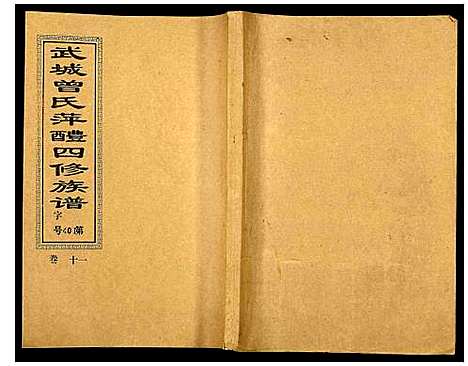 武城曾氏萍醴四修族谱
字
第 号
卷十一